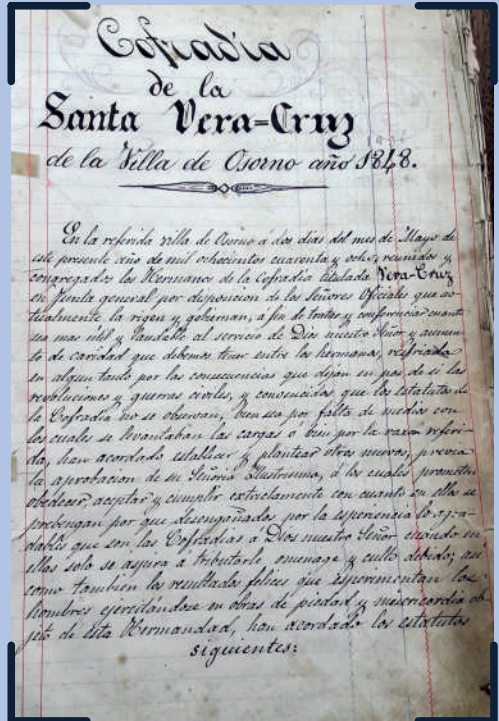 Cofradía
de la
Santa Vera=Cruz
de la Villa de Osorno año 1848.
En la referida villa de Osorno á dos dias del mes de Mayo de
este presente año de mil ochocientos cuarenta y ocho, reunidos y
congregados los Hermanos de la Cofradia titulada Vera=Cruz
en Junta general por disposicion de los Señores Oficiales que ac-
tualmente la rigen y gobiernan, á fin de tratar y conferenciar cuanto
sea mas util y laudable al servicio de Dios nuestro Señor y aumen-
to de caridad que debemos tener entre los hermanos, resfriada
en algun tanto por las consecuencias que dejan en pos de si las
revoluciones y guerras civiles, y convencidos que los estatutos de
la Cofradia no se observan, bien sea por falta de medios con
los cuales se levantaban las cargas ó bien por la razon referi-
da, han acordado establecer y plantear otros nuevos, previa
la aprobacion de su Señoria Ilustrisima, á los cuales prometen
obedecer, aceptar y cumplir extrictamente con cuanto en ellos se
prebengan por que desengañados por la esperiencia lo agra-
dables que son las Cofradias á Dios nuestro Señor cuando en
ellas solo se aspira á tributarle, omenage y culto debido; asi
como tambien los resultados felices que esperimentan los
hombres ejercitándose en obras de piedad y misericordia ob-
jeto de esta Hermandad, han acordado los estatutos
siguientes: